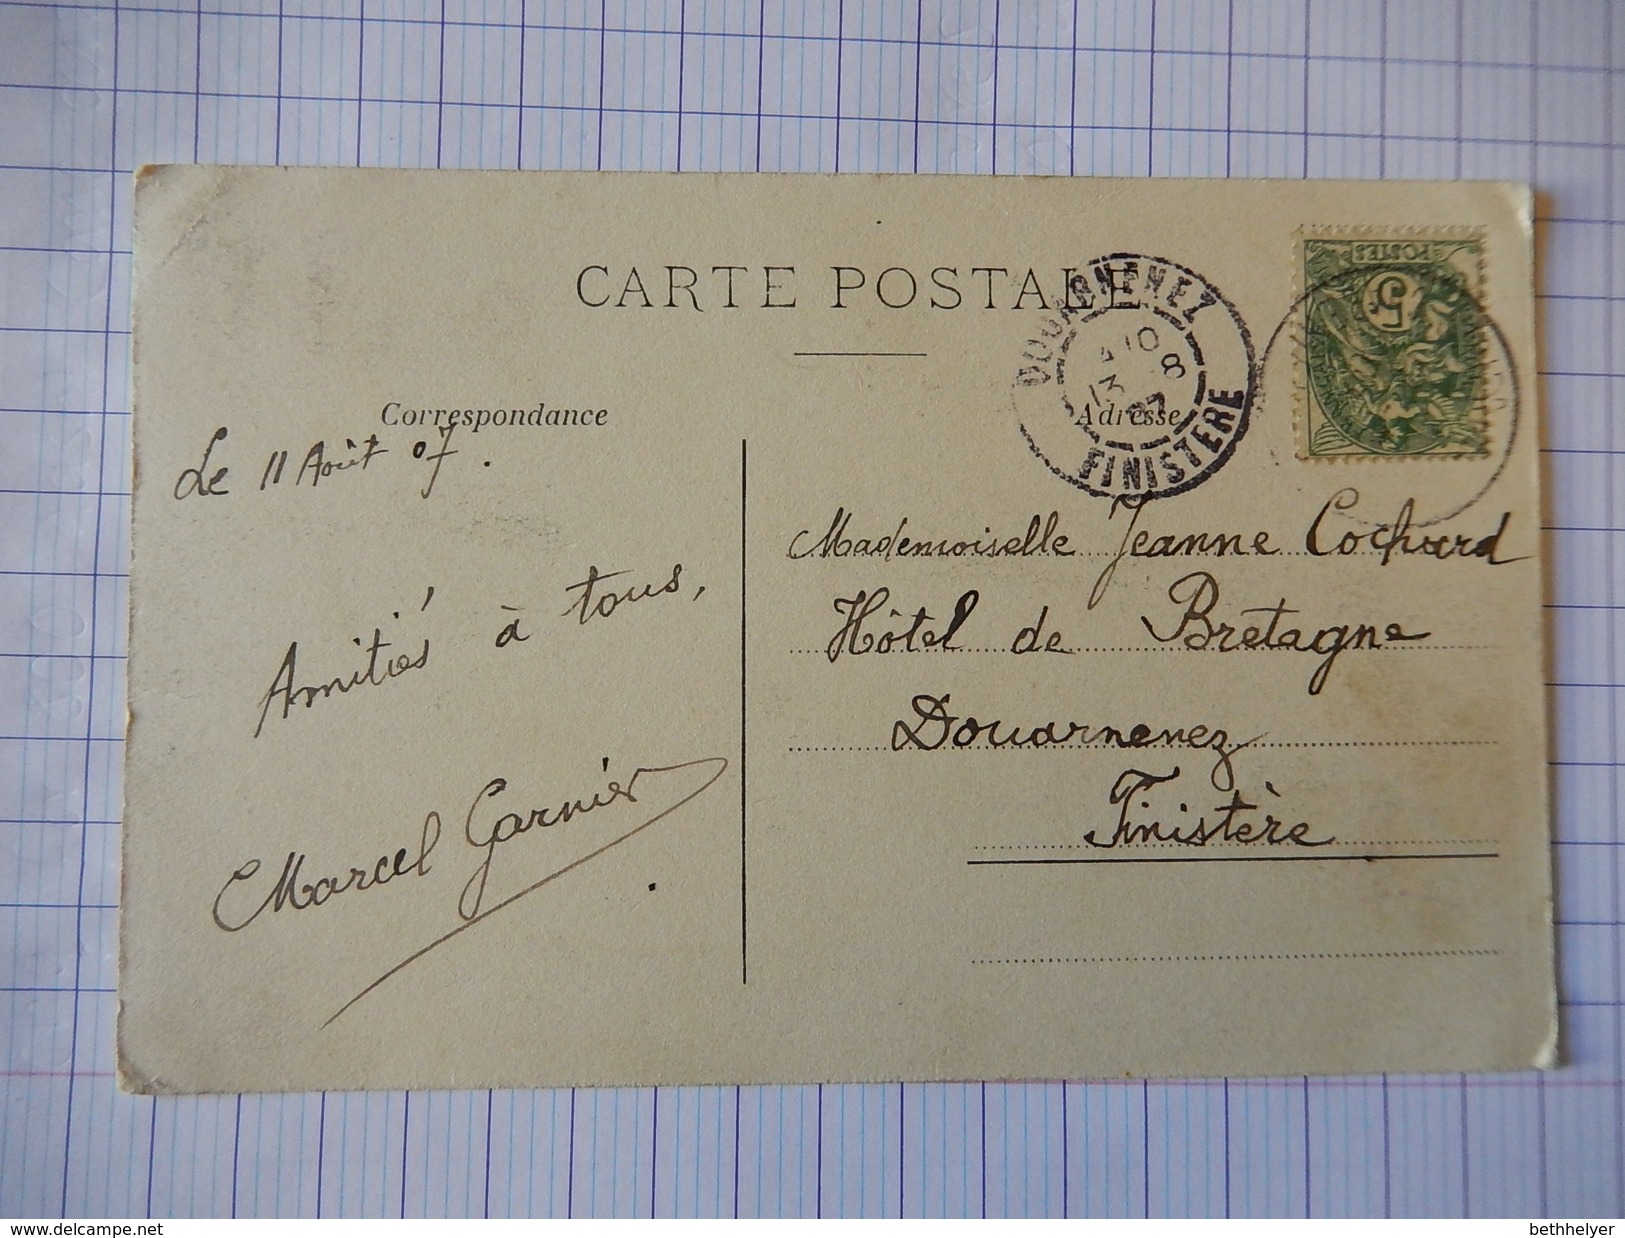 CARTE POSTALE
DOUARNENEZ
13 8
07
FINISTERE
POSTES
5
Correspondance
Adresse
Le 11 Août 07.
Amitiés à tous,
Marcel Garnier
Mademoiselle Jeanne Cochard
Hôtel de Bretagne
Douarnenez
Finistère
www.delcampe.net
bethhelyer